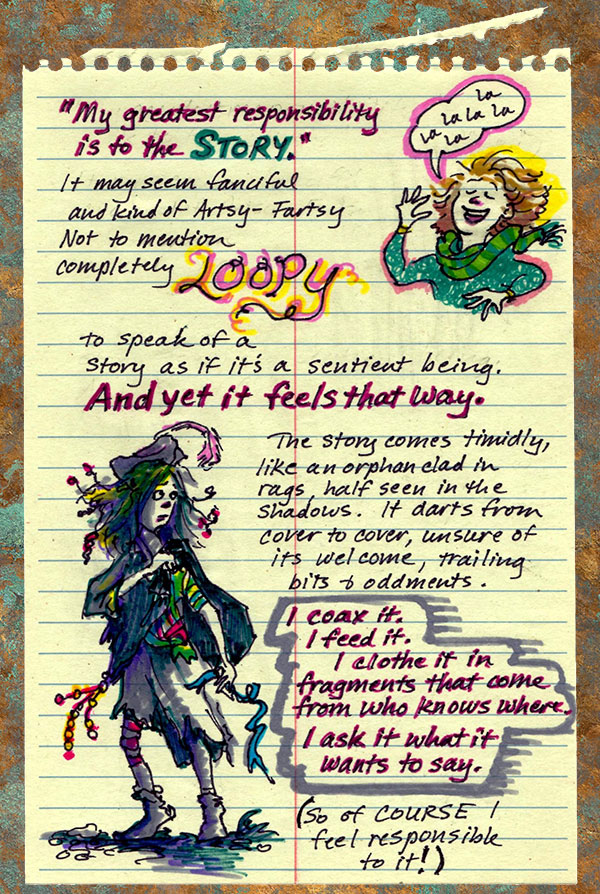 "My greatest responsibility
is to the STORY."
la
la la la
la la
It may seem fanciful
and kind of Artsy-Fartsy
Not to mention
completely LOOPY
to speak of a
story as if it's a sentient being.
And yet it feels that way.
The story comes timidly,
like an orphan clad in
rags, half seen in the
shadows. It darts from
cover to cover, unsure of
its welcome, trailing
bits & oddments.
I coax it.
I feed it.
I clothe it in
fragments that come
from who knows where.
I ask it what it
wants to say.
(So of COURSE I
feel responsible
to it!)